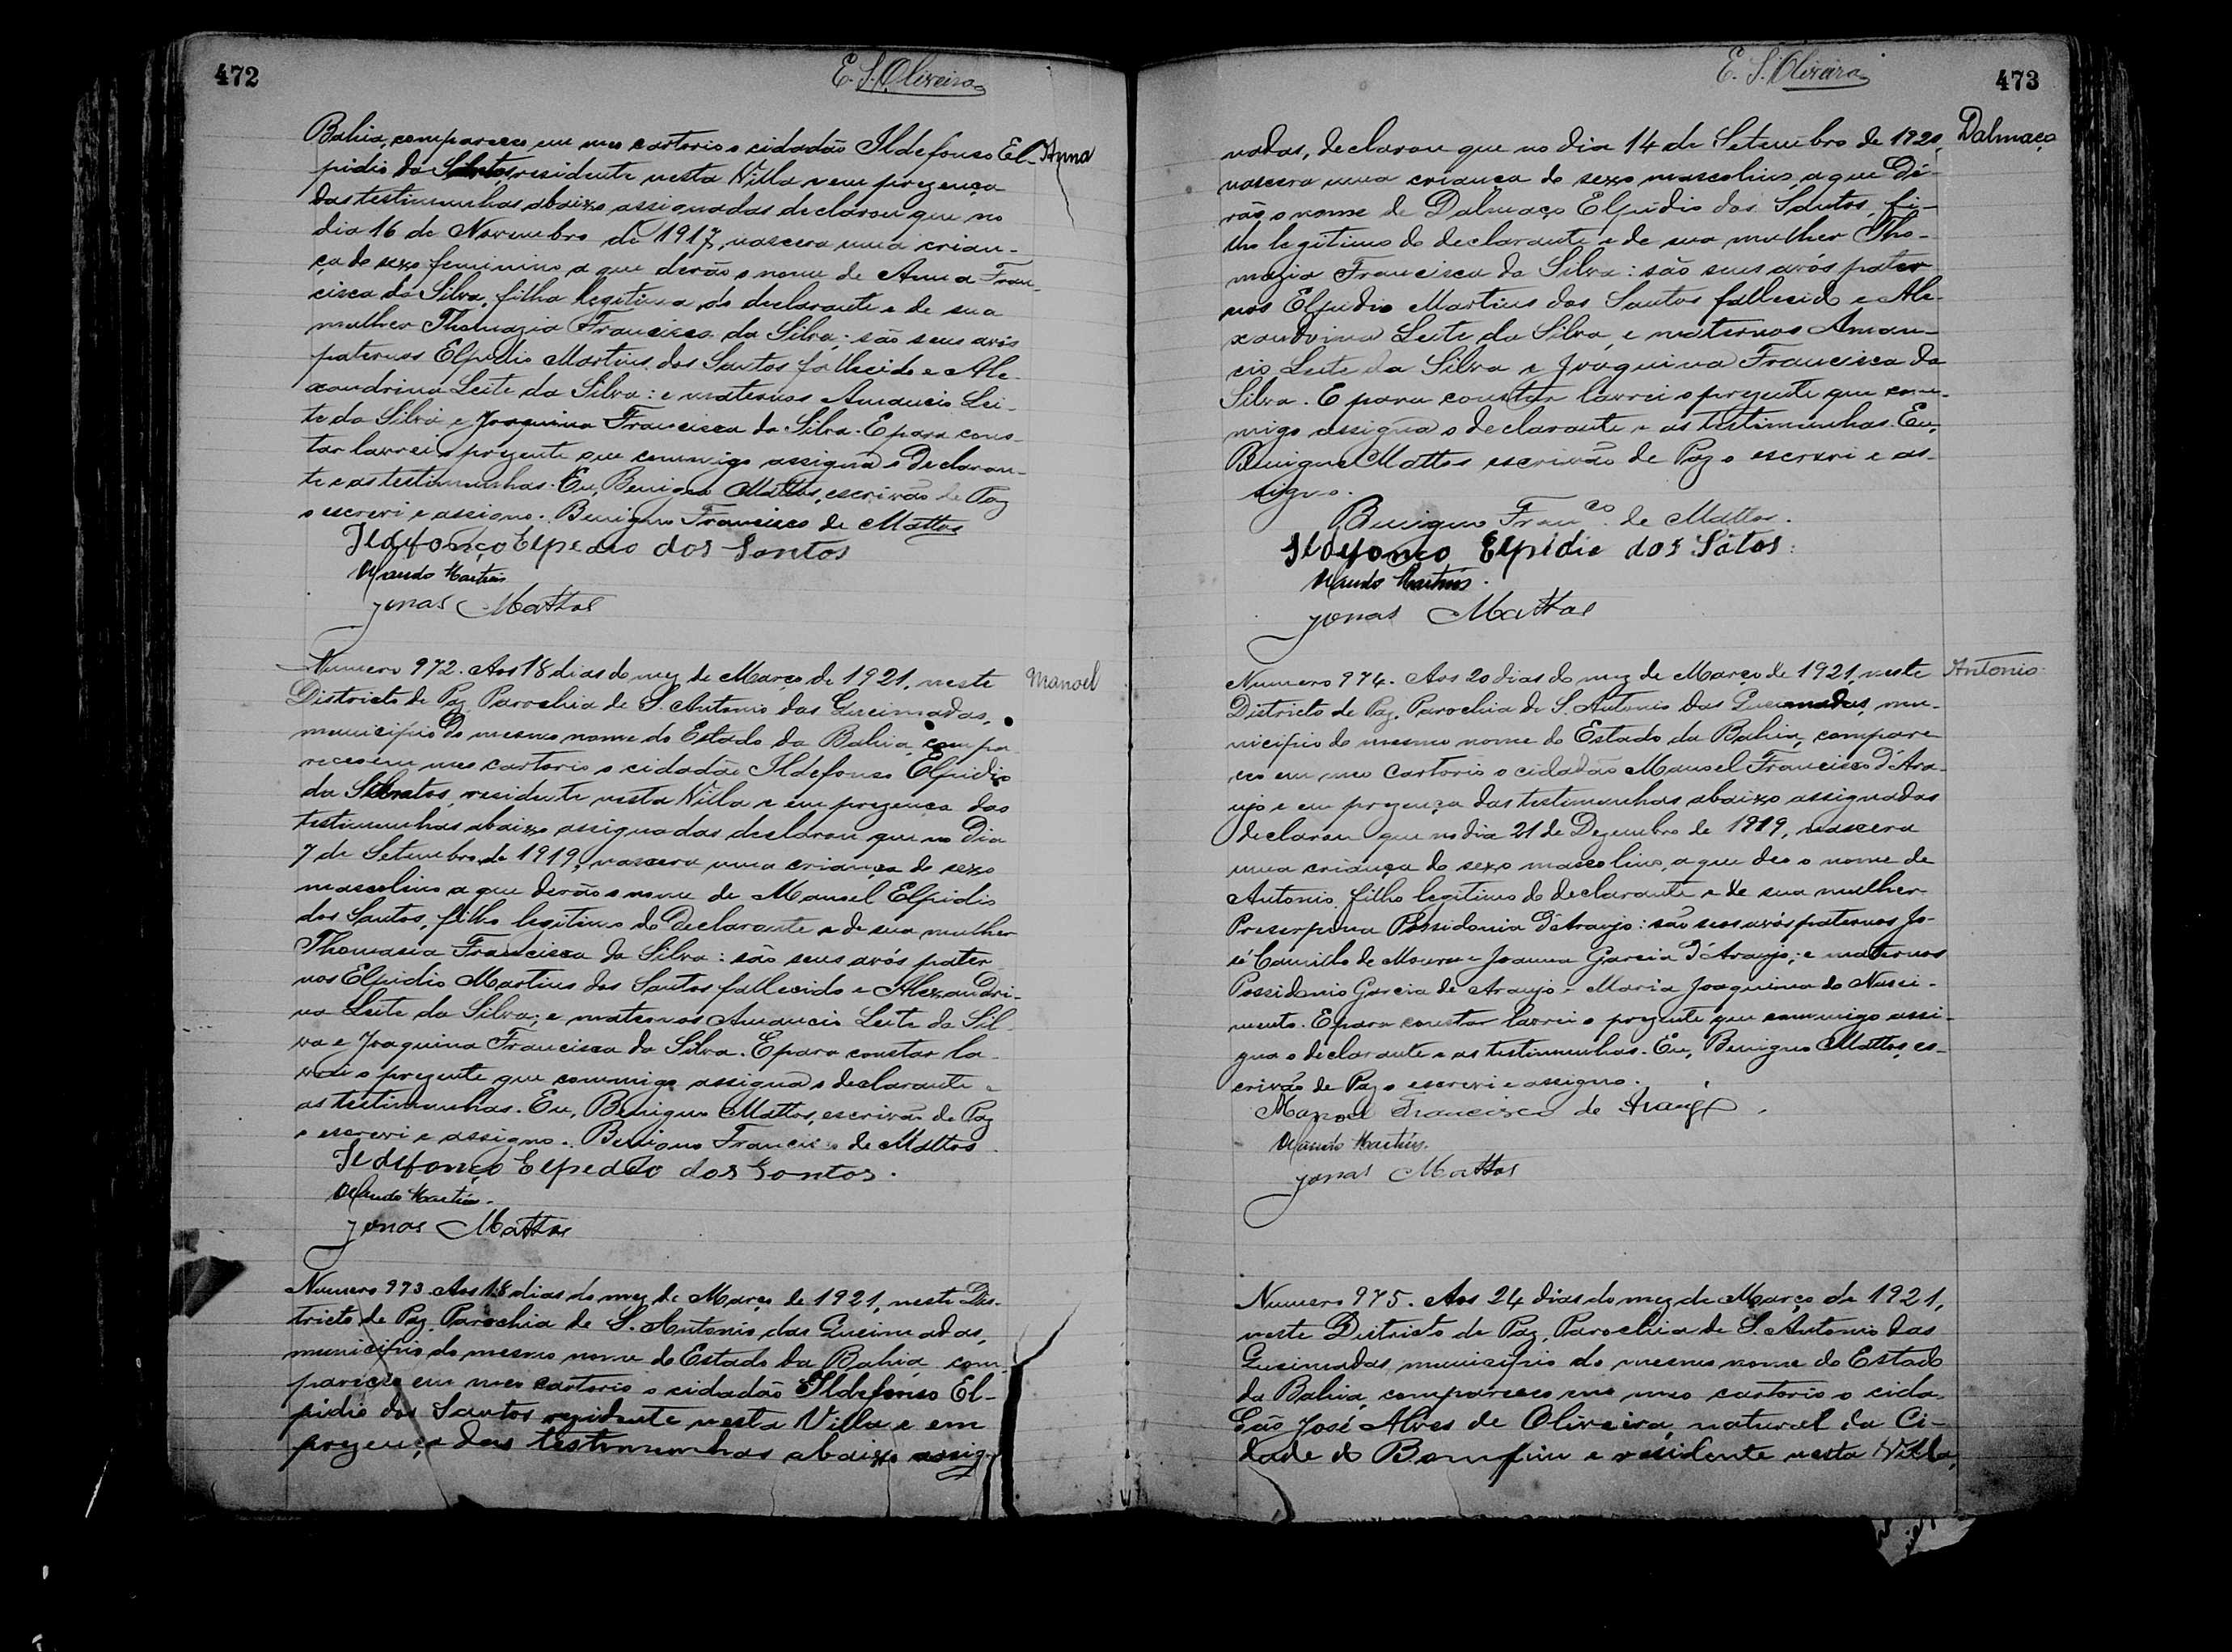 472
E. S. Oliveira
Bahia, compareceu em meo cartorio o cidadão Ildefonso El-
Anna
pidio da Santos residente nesta Villa e em prezença
das testimunhas abaixo assignadas declarou que no
dia 16 de Novembro de 1917, nascera uma crian-
ça do sexo feminino a que derão o nome de Anna Fran-
cisca da Silva, filha legitima do declarante e de sua
mulher Thomazia Francisca da Silva: são seus avós
paternos Elpidio Martins dos Santos fallecido e Ale-
xandrina Leite da Silva: e maternos Amancio Lei-
te da Silva e Joaquina Francisca da Silva. E para cons-
tar lavrei o prezente que commigo assigna o declaran-
te e as testimunhas. Eu, Benigno Mattos, escrivão de Paz
o escrevi e assigno. Benigno Francisco de Mattos
Ildefonço Elpedio dos Santos
Martins
Jonas Mattos
Numero 972. Aos 18 dias do mez de Março de 1921, neste
Manoel
Districto de Paz, Parochia de S. Antonio das Queimadas,
municipio do mesmo nome do Estado da Bahia, compa
receo em meo cartorio o cidadão Ildefonso Elpidio
da Santos, residente nesta Villa e em prezença das
testimunhas abaixo assignadas declarou que no dia
7 de Setembro de 1919, nascera uma criança do sexo
masculino a que derão o nome de Manoel Elpidio
dos Santos, filho legitimo do declarante e de sua mulher
Thomasia Francisca da Silva: são seus avós pater
nos Elpidio Martins dos Santos fallecido e Alexandri-
na Leite da Silva; e maternos Amancio Leite da Sil
va e Joaquina Francisca da Silva. E para constar la-
vrei o prezente que commigo assigna o declarante e
as testimunhas. Eu, Benigno Mattos, escrivão de Paz
o escrevi e assigno. Benigno Francisco de Mattos
Ildefonço Elpedio dos Santos.
Martins.
Jonas Mattos
Numero 973. Aos 18 dias do mez de Março de 1921, neste Dis-
tricto de Paz, Parochia de S. Antonio das Queimadas,
municipio do mesmo nome do Estado da Bahia, com
pareceo em meo cartorio o cidadão Ildefonso El-
pidio dos Santos rezidente nesta Villa e em
prezença das testimunhas abaixo assig-
E. S. Oliveira
473
nadas, declarou que no dia 14 de Setembro de 1920,
Dalmaço
nascera uma criança do sexo masculino, a que de-
rão o nome de Dalmaço Elpidio dos Santos, fi-
lho legitimo do declarante e de sua mulher Tho-
mazia Francisca da Silva: são seus avós pater-
nos Elpidio Martins dos Santos fallecido e Ale-
xandrina Leite da Silva, e maternos Aman-
cio Leite da Silva e Joaquina Francisca da
Silva. E para constar lavrei o prezente que com-
migo assigna o declarante e as testimunhas. Eu,
Benigno Mattos escrivão de Paz o escrevi e as-
signo.
Benigno Franco. de Mattos.
Ildefonço Elpidio dos Sãtos.
Martins.
Jonas Mattos
Numero 974. Aos 20 dias do mez de Março de 1921, neste
Antonio
Districto de Paz, Parochia de S. Antonio das Queimadas, mu-
nicipio do mesmo nome do Estado da Bahia, compare
ceo em meo Cartorio o cidadão Manoel Francisco d'Ara-
ujo e em prezença das testimunhas abaixo assignadas
declarou que no dia 21 de Dezembro de 1919, nascera
uma criança do sexo masculino, a que deo o nome de
Antonio, filho legitimo do declarante e de sua mulher
Preserpina Possidonia d'Araujo: são seus avós paternos Jo-
sé Camillo de Moura e Joanna Garcia d'Araujo; e maternos
Possidonio Garcia de Araujo e Maria Joaquina do Nasci-
mento. E para constar lavrei o prezente que commigo assi-
gna o declarante e as testimunhas. Eu, Benigno Mattos, es-
crivão de Paz o escrevi e assigno.
Manoel Francisco de Araujo
Martins.
Jonas Mattos
Numero 975. Aos 24 dias do mez de Março de 1921,
neste Districto de Paz, Parochia de S. Antonio das
Queimadas, municipio do mesmo nome do Estado
da Bahia, compareceo em meo cartorio o cida-
dão José Alves de Oliveira, natural da Ci-
dade do Bomfim e residente nesta Villa,